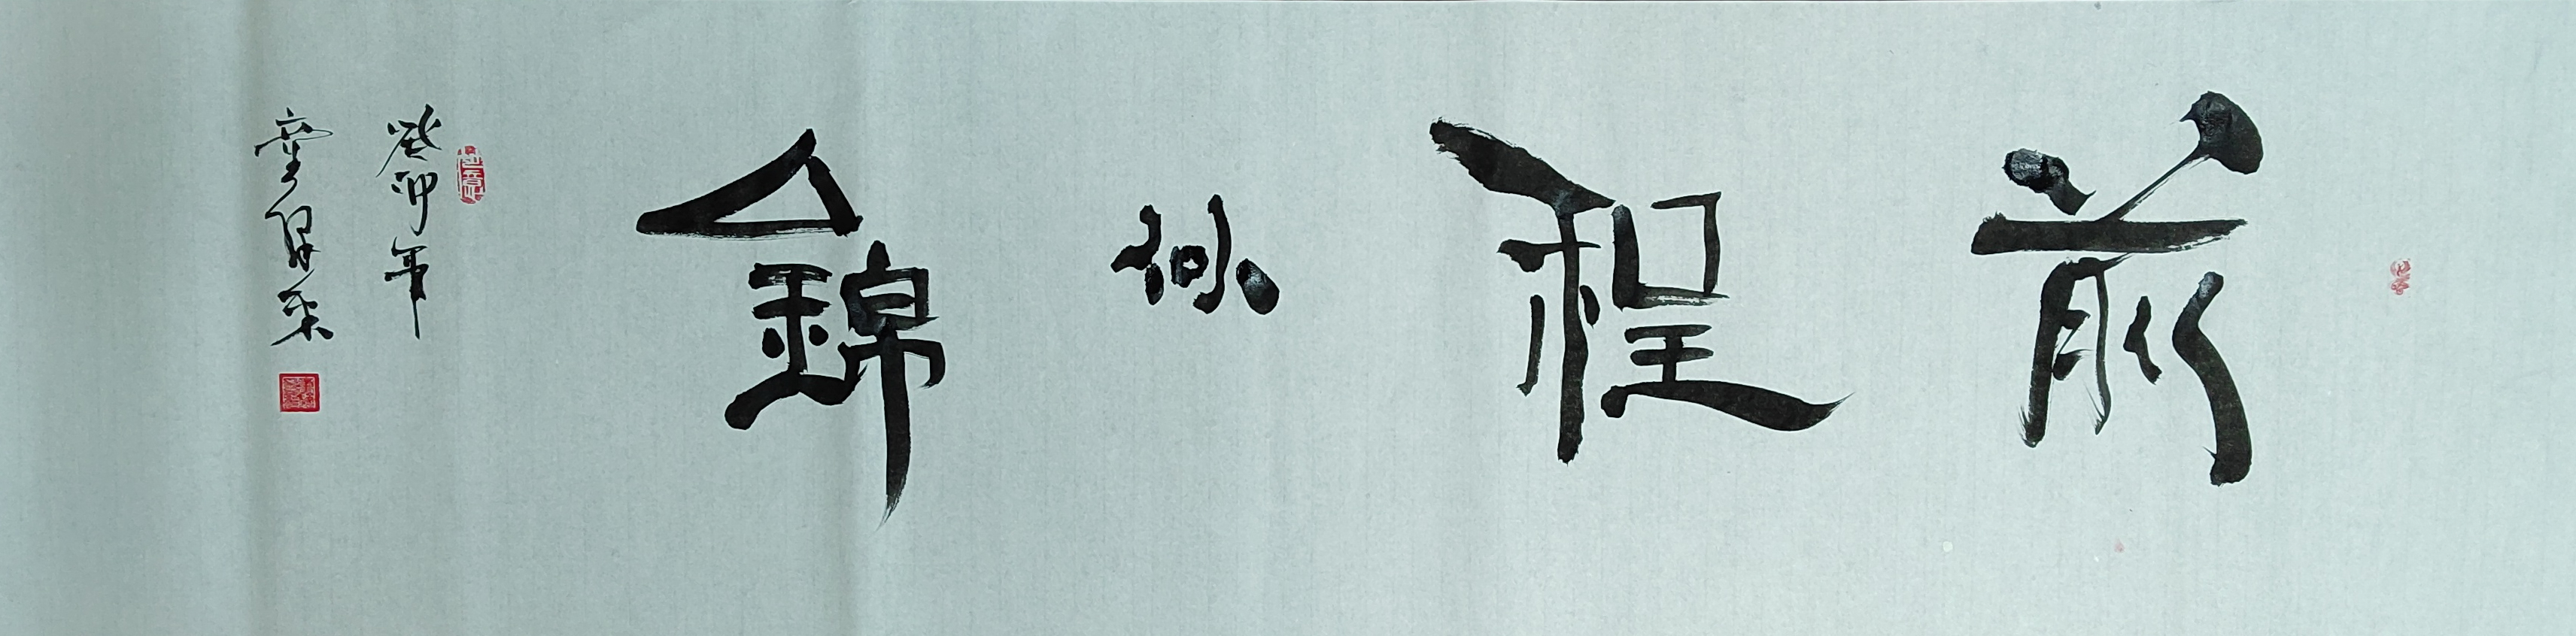 前程似錦
癸卯年